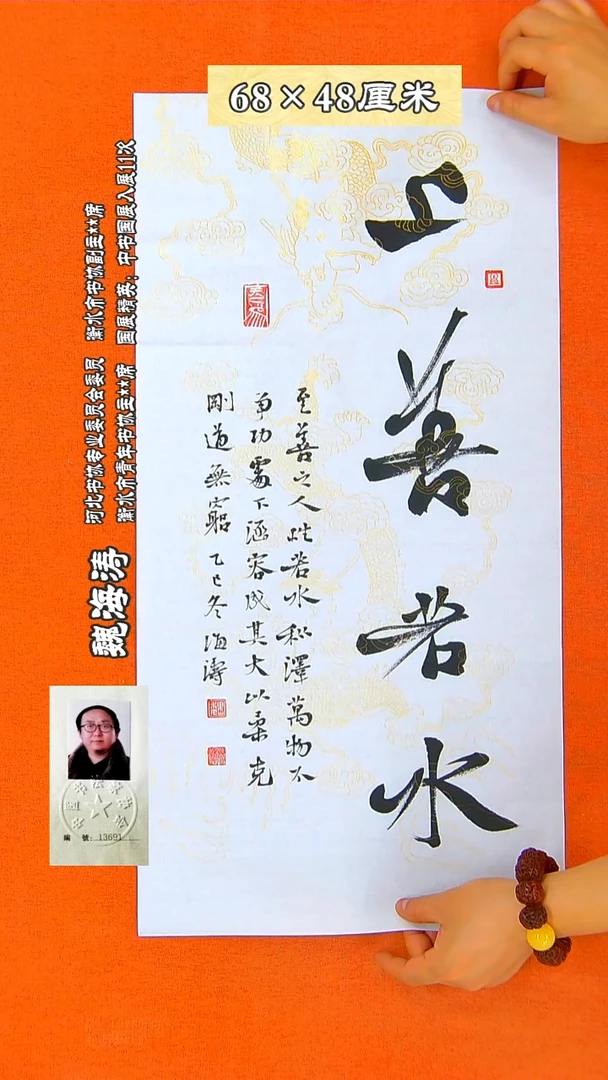 68×48厘米
上善若水
至善之人性若水利澤萬物不
爭功處下涵容成其大以柔克
剛道無窮 乙巳冬海濤
魏海涛
河北书协专业委员会委员 衡水市书协副主**席
衡水市青年书协主**席 国展精英：中书国展入展11次
编 號：13691